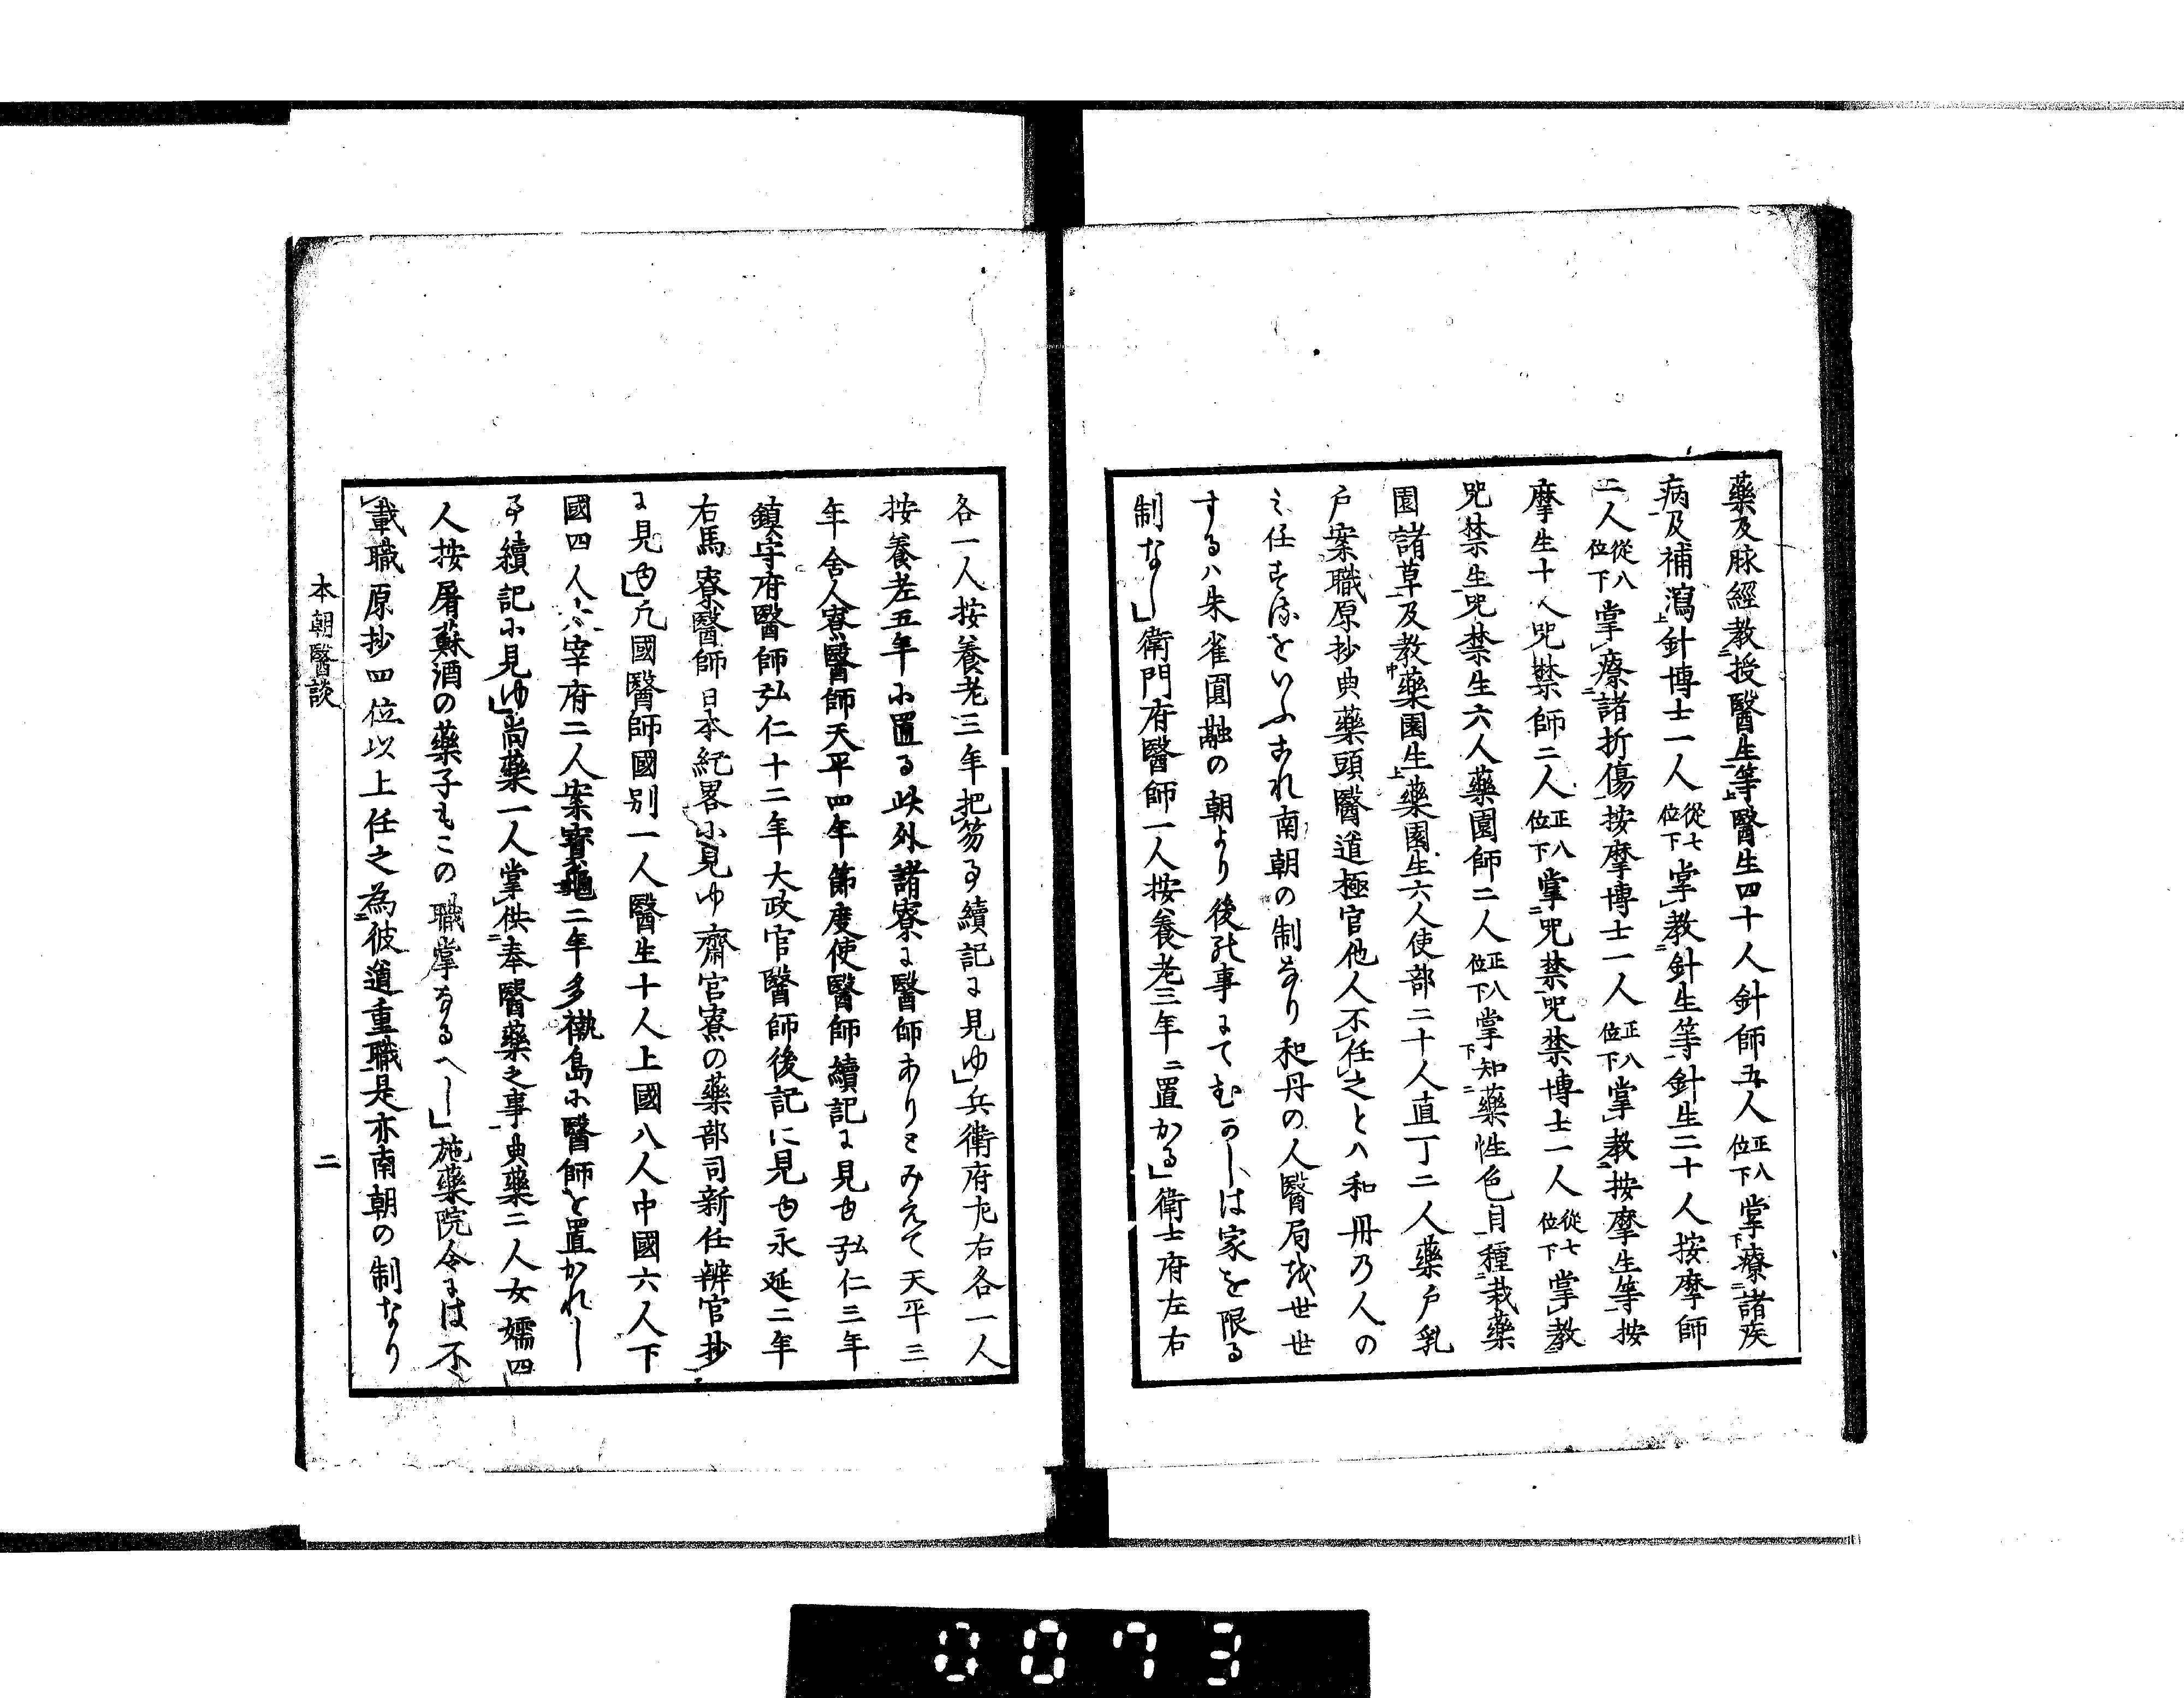 藥及脉經教授醫生等醫生四十人針師五人正八位下掌療諸疾
病及補瀉針博士一人從七位下掌教針生等針生二十人按摩師
二人從八位下掌療諸折傷按摩博士一人正八位下掌教按摩生等按
摩生十人咒禁師二人正八位下掌咒禁咒禁博士一人從七位下掌教
咒禁生咒禁生六人藥園師二人正八位下掌知藥性色目種栽藥
園諸草及教藥園生藥園生六人使部二十人直丁二人藥戶乳
戶案職原抄典藥頭醫道極官他人不任之とハ和丹乃人の
ミ任するをいふこれ南朝の制なり和丹の人醫局を世世
するハ朱雀圓融の朝より後の事にてむかしは家を限る
制なし衛門府醫師一人按養老三年ニ置かる衛士府左右
各一人按養老三年把笏る事續記に見ゆ兵衛府左右各一人
按養老五年に置る此外諸寮に醫師ありとみえて天平三
年舍人寮醫師天平四年節度使醫師續記に見ゆ弘仁三年
鎮守府醫師弘仁十二年大政官醫師後記に見ゆ永延二年
右馬寮醫師日本紀畧に見ゆ齋官寮の藥部司新任辨官抄
に見ゆ凢國醫師國別一人醫生十人上國八人中國六人下
國四人太宰府二人案寶龜二年多褹島に醫師を置かれし
事續記に見ゆ尚藥一人掌供奉醫藥之事典藥二人女孺四
人按屠蘇酒の藥子もこの職掌なるへし施藥院令には不
載職原抄四位以上任之為彼道重職是亦南朝の制なり
本朝醫談
二
0073